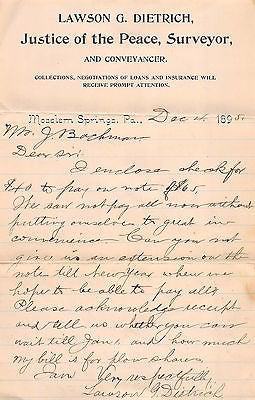 LAWSON G. DIETRICH,
Justice of the Peace, Surveyor,
AND CONVEYANCER.
COLLECTIONS, NEGOTIATIONS OF LOANS AND INSURANCE WILL
RECEIVE PROMPT ATTENTION.
Moselem Springs, Pa., Dec 4, 1895.
Mr. J. Bachman
Dear Sir
I enclose check for
$40 to pay on note of $65.
We can not pay all now without
putting ourselves to great in
convenience. Can you not
give us an extension on the
note till New Year when we
hope to be able to pay all?
Please acknowledge receipt
and tell us whether you can
wait till Jan 1, and how much
my bill is for plow shares.
I am Very respectfully,
Lawson G. Dietrich